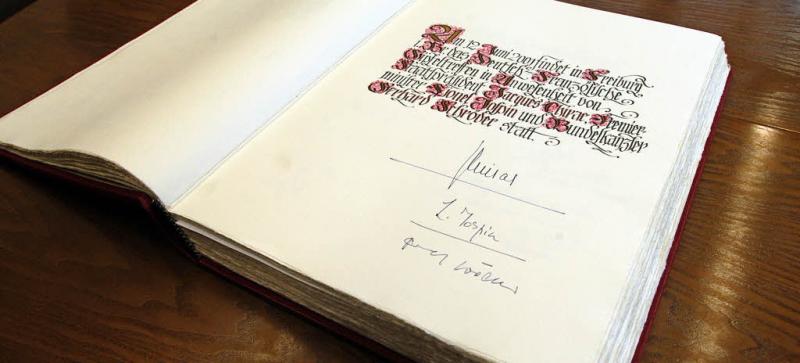 Am 12. Juni 2001 findet in Freiburg
i. B. das Deutsch-Französische
Gipfeltreffen in Anwesenheit von
Staatspräsident Jacques Chirac, Premier-
minister Lionel Jospin und Bundeskanzler
Gerhard Schröder statt.
L. Jospin